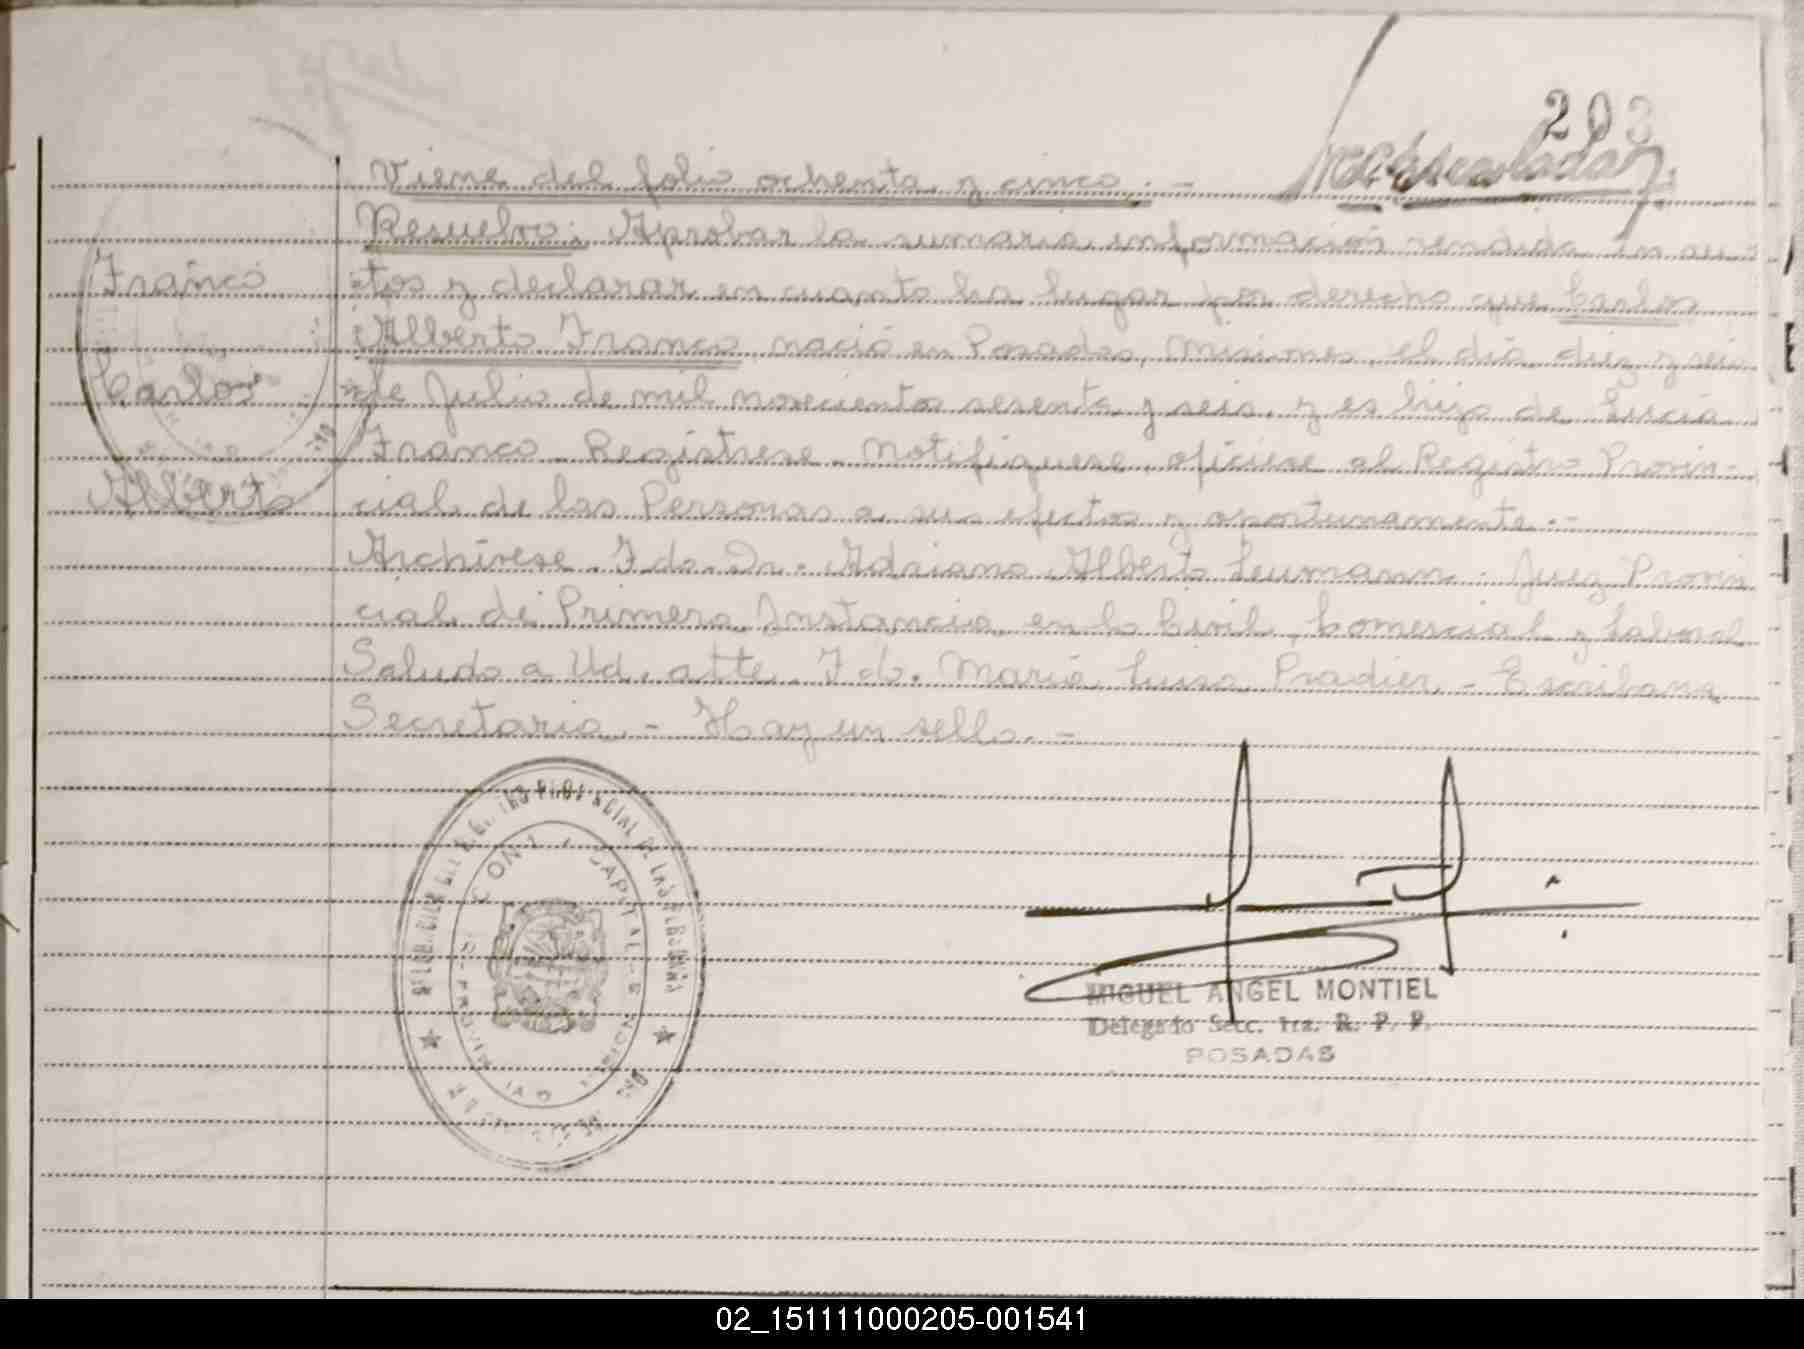 203
Viene del folio ochenta y cinco.-
Resuelvo: Aprobar la sumaria información rendida en au-
Franco
tos y declarar en cuanto ha lugar por derecho que Carlos
Alberto Franco, nació en Posadas, Misiones, el día diez y seis
Carlos
de Julio de mil novecientos sesenta y seis, y es hijo de Lucía
Franco. Regístrese. Notifíquese, ofíciese al Registro Provin-
Alberto
cial de las Personas a sus efectos y oportunamente.-
Archívese. Fdo. Dr. Adriano Alberto Leumann. Juez Provin
cial de Primera Instancia en lo Civil, Comercial y Laboral
Saludo a Ud. atte. Fdo. María Luisa Pradier - Escribana
Secretaria.- Hay un sello.-
MIGUEL ANGEL MONTIEL
Delegado Secc. 1ra. R. P. P.
POSADAS
02_151111000205-001541